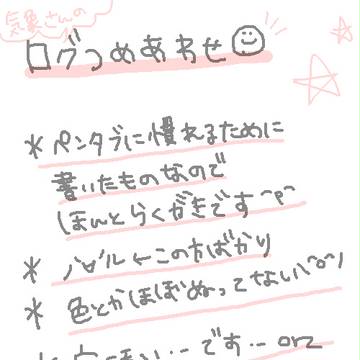 気象さんの
ログつめあわせ
* ペンタブに慣れるために
書いたものなので
ほんとらくがきです^p^
* ハ゛ル←この方ばかり
* 色とかほぼぬってない\^o^/
です… orz